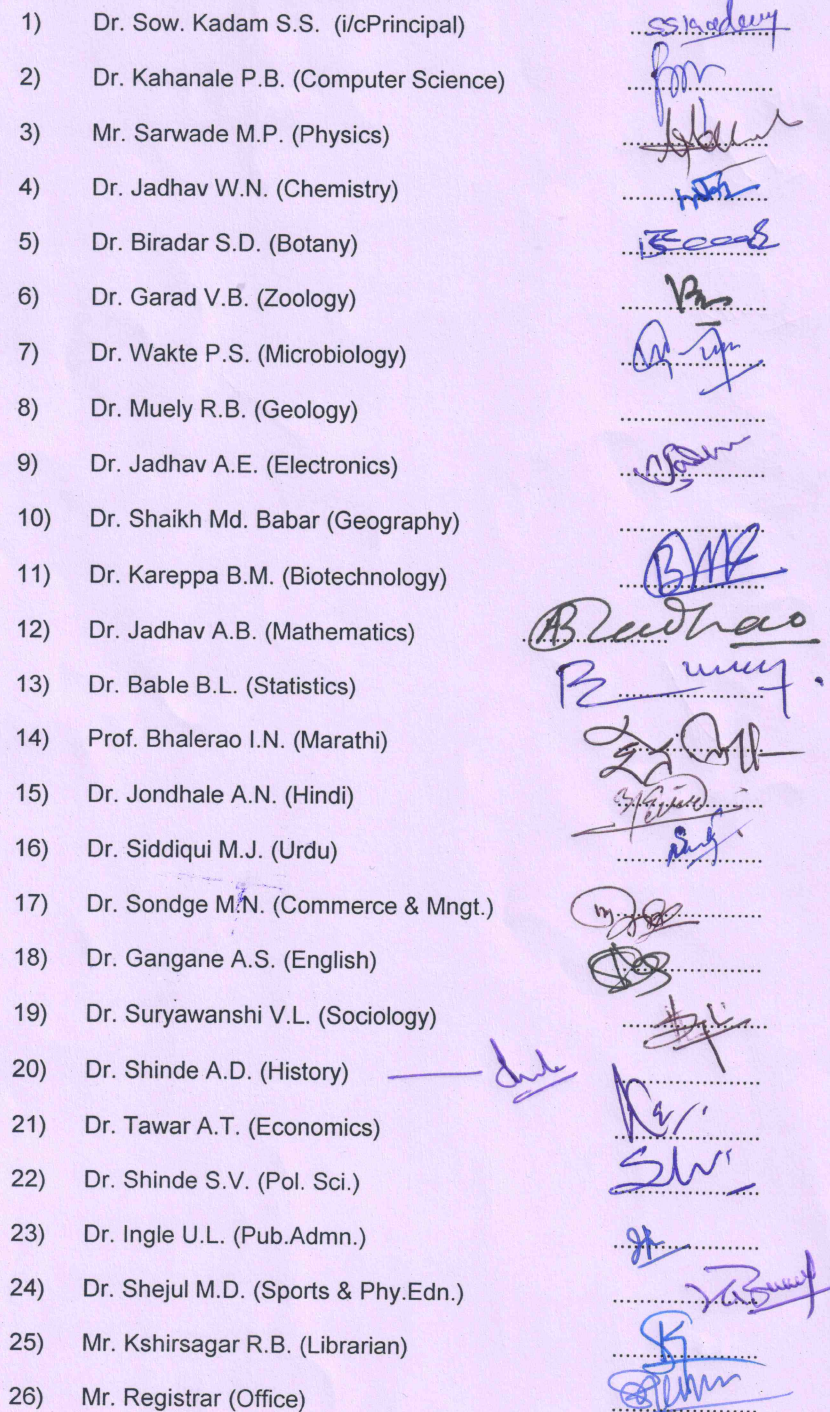 1) Dr. Sow. Kadam S.S. (i/cPrincipal) sskadam
2) Dr. Kahanale P.B. (Computer Science)
3) Mr. Sarwade M.P. (Physics)
4) Dr. Jadhav W.N. (Chemistry)
5) Dr. Biradar S.D. (Botany)
6) Dr. Garad V.B. (Zoology)
7) Dr. Wakte P.S. (Microbiology)
8) Dr. Muely R.B. (Geology)
9) Dr. Jadhav A.E. (Electronics)
10) Dr. Shaikh Md. Babar (Geography)
11) Dr. Kareppa B.M. (Biotechnology)
12) Dr. Jadhav A.B. (Mathematics)
13) Dr. Bable B.L. (Statistics)
14) Prof. Bhalerao I.N. (Marathi)
15) Dr. Jondhale A.N. (Hindi)
16) Dr. Siddiqui M.J. (Urdu)
17) Dr. Sondge M.N. (Commerce & Mngt.)
18) Dr. Gangane A.S. (English)
19) Dr. Suryawanshi V.L. (Sociology)
20) Dr. Shinde A.D. (History)
21) Dr. Tawar A.T. (Economics)
22) Dr. Shinde S.V. (Pol. Sci.)
23) Dr. Ingle U.L. (Pub.Admn.)
24) Dr. Shejul M.D. (Sports & Phy.Edn.)
25) Mr. Kshirsagar R.B. (Librarian)
26) Mr. Registrar (Office)